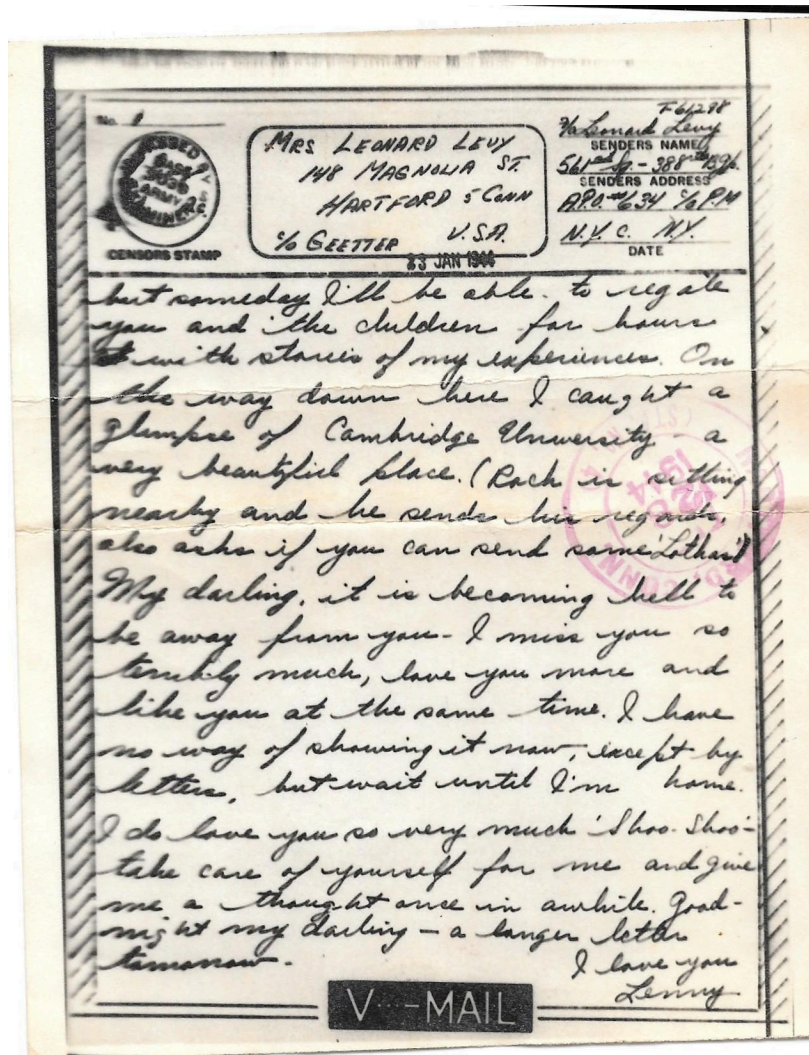 No. 1
PASSED BY
BASE
ARMY
EXAMINER
CENSORS STAMP
MRS LEONARD LEVY
148 MAGNOLIA ST.
HARTFORD 5 CONN
U.S.A.
c/o GEETTER
23 JAN 1944
F61298
Leonard Levy
SENDERS NAME
561st Sq. - 388th
SENDERS ADDRESS
A.P.O. #634 c/o P.M
N.Y. C. N.Y.
DATE
but someday I'll be able to regale
you and the children for hours
with stories of my experiences. On
the way down here I caught a
glimpse of Cambridge University - a
very beautiful place. (Rock is sitting
nearby and he sends his regards,
also asks if you can send some
My darling, it is becoming hell to
be away from you - I miss you so
terribly much, love you more and
like you at the same time. I have
no way of showing it now, except by
letters, but wait until I'm home.
I do love you so very much 'Shoo-Shoo' -
take care of yourself for me and give
me a thought once in awhile. Good-
night my darling - a longer letter
tomorrow.
I love you
Lenny
V···-MAIL
CONN